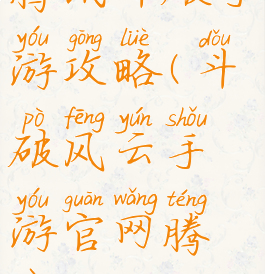 yóu gōng lüè dǒu
游攻略(斗
pò fēng yún shǒu
破风云手
yóu guān wǎng téng
游官网腾